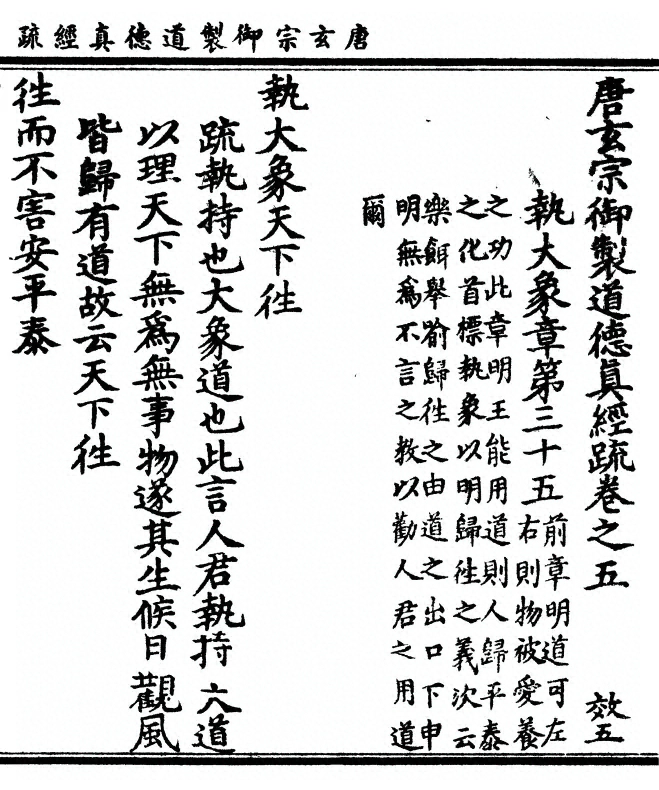 唐玄宗御製道德真經疏
唐玄宗御製道德眞經疏卷之五 效五
執大象章第三十五 前章明道可左
右則物被愛養
之功此章明王能用道則人歸平泰
之化首標執象以明歸徃之義次云
樂餌舉喻歸徃之由道之出口下申
明無爲不言之教以勸人君之用道
爾
執大象天下徃
疏執持也大象道也此言人君執持大道
以理天下無爲無事物遂其生候日觀風
皆歸有道故云天下徃
徃而不害安平泰